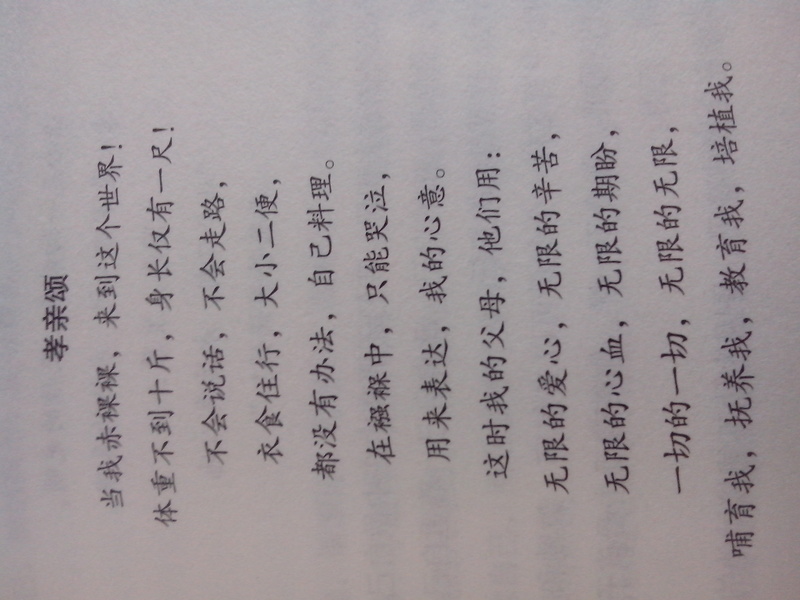 孝亲颂
当我赤裸裸，来到这个世界！
体重不到十斤，身长仅有一尺！
不会说话，不会走路，
衣食住行，大小二便，
都没有办法，自己料理。
在襁褓中，只能哭泣，
用来表达，我的心意。
这时我的父母，他们用：
无限的爱心，无限的辛苦，
无限的心血，无限的期盼，
一切的一切，无限的无限，
哺育我，抚养我，教育我，培植我。